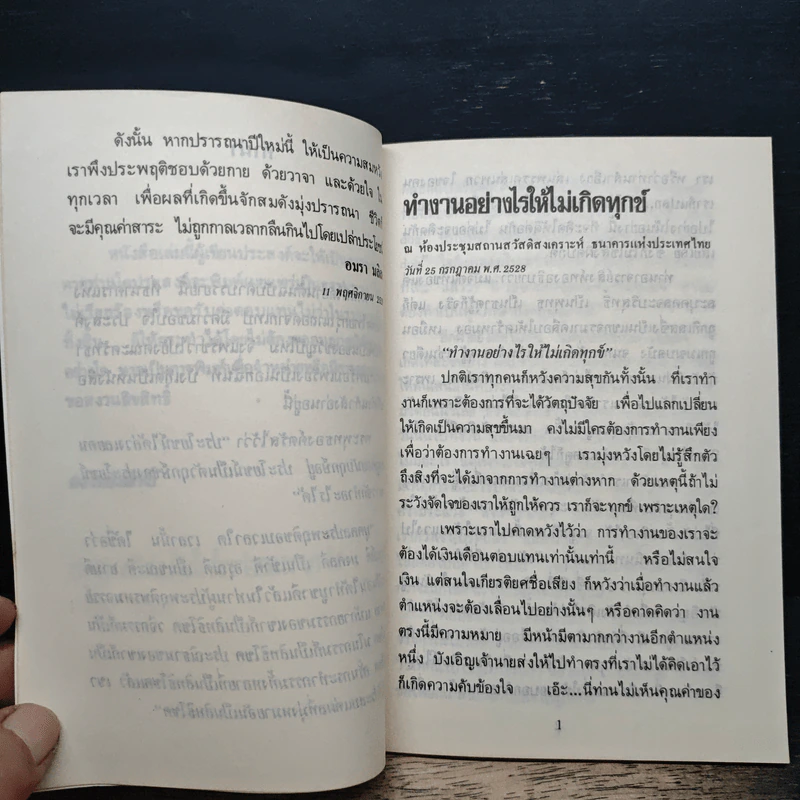 ดังนั้น หากปรารถนาปีใหม่นี้ ให้เป็นความสมหวัง
เราพึงประพฤติชอบด้วยกาย ด้วยวาจา และด้วยใจ ใน
ทุกเวลา เพื่อผลที่เกิดขึ้นจักสมดังมุ่งปรารถนา ชีวิต
จะมีคุณค่าสาระ ไม่ถูกกาลเวลากลืนกินไปโดยเปล่าประโยชน์
อมรา
11 พฤศจิกายน
ทำงานอย่างไรให้ไม่เกิดทุกข์
ณ ห้องประชุมสถานสวัสดิสงเคราะห์ ธนาคารแห่งประเทศไทย
วันที่ 25 กรกฎาคม พ.ศ. 2528
“ทำงานอย่างไรให้ไม่เกิดทุกข์”
ปกติเราทุกคนก็หวังความสุขกันทั้งนั้น ที่เราทำ
งานก็เพราะต้องการที่จะได้วัตถุปัจจัย เพื่อไปแลกเปลี่ยน
ให้เกิดเป็นความสุขขึ้นมา คงไม่มีใครต้องการทำงานเพียง
เพื่อว่าต้องการทำงานเฉยๆ เรามุ่งหวังโดยไม่รู้สึกตัว
ถึงสิ่งที่จะได้มาจากการทำงานต่างหาก ด้วยเหตุนี้ถ้าไม่
ระวังจัดใจของเราให้ถูกให้ควร เราก็จะทุกข์ เพราะเหตุใด?
เพราะเราไปคาดหวังไว้ว่า การทำงานของเราจะ
ต้องได้เงินเดือนตอบแทนเท่านั้นเท่านี้ หรือไม่สนใจ
เงิน แต่สนใจเกียรติยศชื่อเสียง ก็หวังว่าเมื่อทำงานแล้ว
ตำแหน่งจะต้องเลื่อนไปอย่างนั้นๆ หรือคาดคิดว่า งาน
ตรงนี้มีความหมาย มีหน้ามีตามากกว่างานอีกตำแหน่ง
หนึ่ง บังเอิญเจ้านายส่งให้ไปทำตรงที่เราไม่ได้คิดเอาไว้
ก็เกิดความคับข้องใจ เอ๊ะ...นี่ท่านไม่เห็นคุณค่าของ
1